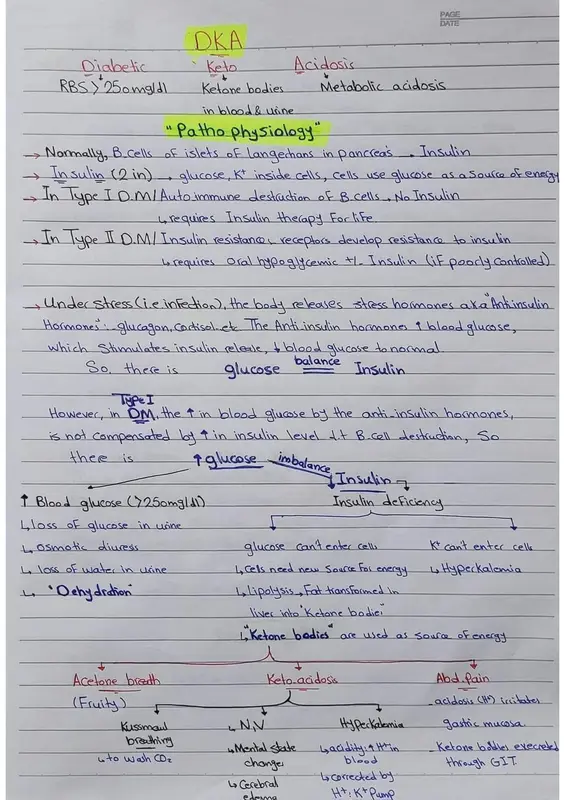 PAGE
DATE
DKA
Diabetic Keto Acidosis
RBS > 250mg/dl Ketone bodies Metabolic acidosis
in blood & urine
"Patho physiology"
→ Normally, B.cells of islets of Langerhans in pancreas → Insulin
→ Insulin (2 in) → glucose, K+ inside cells, cells use glucose as a source of energy
→ In Type I D.M/ Auto immune destruction of B.cells → No Insulin
↳ requires Insulin therapy for life
→ In Type II D.M/ Insulin resistance, receptors develop resistance to insulin
↳ requires Oral hypoglycemic +/- Insulin (if poorly controlled)
→ Under stress (i.e infection), the body releases stress hormones a.k.a "Antiinsulin
Hormones": glucagon, Cortisol.. etc The Anti.insulin hormones ↑ blood glucose,
which stimulates insulin release, ↓ blood glucose to normal
So, there is glucose balance Insulin
Type I
However, in DM, the ↑ in blood glucose by the anti-insulin hormones,
is not compensated by ↑ in insulin level d.t B.cell destruction, So
there is ↑ glucose imbalance
↓ Insulin
↑ Blood glucose (>250mg/dl) Insulin deficiency
↳ loss of glucose in urine
↳ osmotic diuress glucose can't enter cells K+ can't enter cells
↳ loss of water in urine ↳ cells need new source for energy ↳ Hyperkalemia
↳ "Dehydration" ↳ Lipolysis, Fat transformed in
liver into "Ketone bodies"
↳ "Ketone bodies" are used as source of energy
Acetone breath Keto.acidosis Abd.Pain
(Fruity) acidosis (H+) irritates
gastric mucosa
Kussmaul breathing
↳ to wash CO2
↳ N,V
↳ Mental state changes
↳ Cerebral edema
Hyperkalemia
↳ acidity: ↑ H+ in blood
↳ corrected by
H+: K+ Pump
Ketone bodies execreted
through GIT.